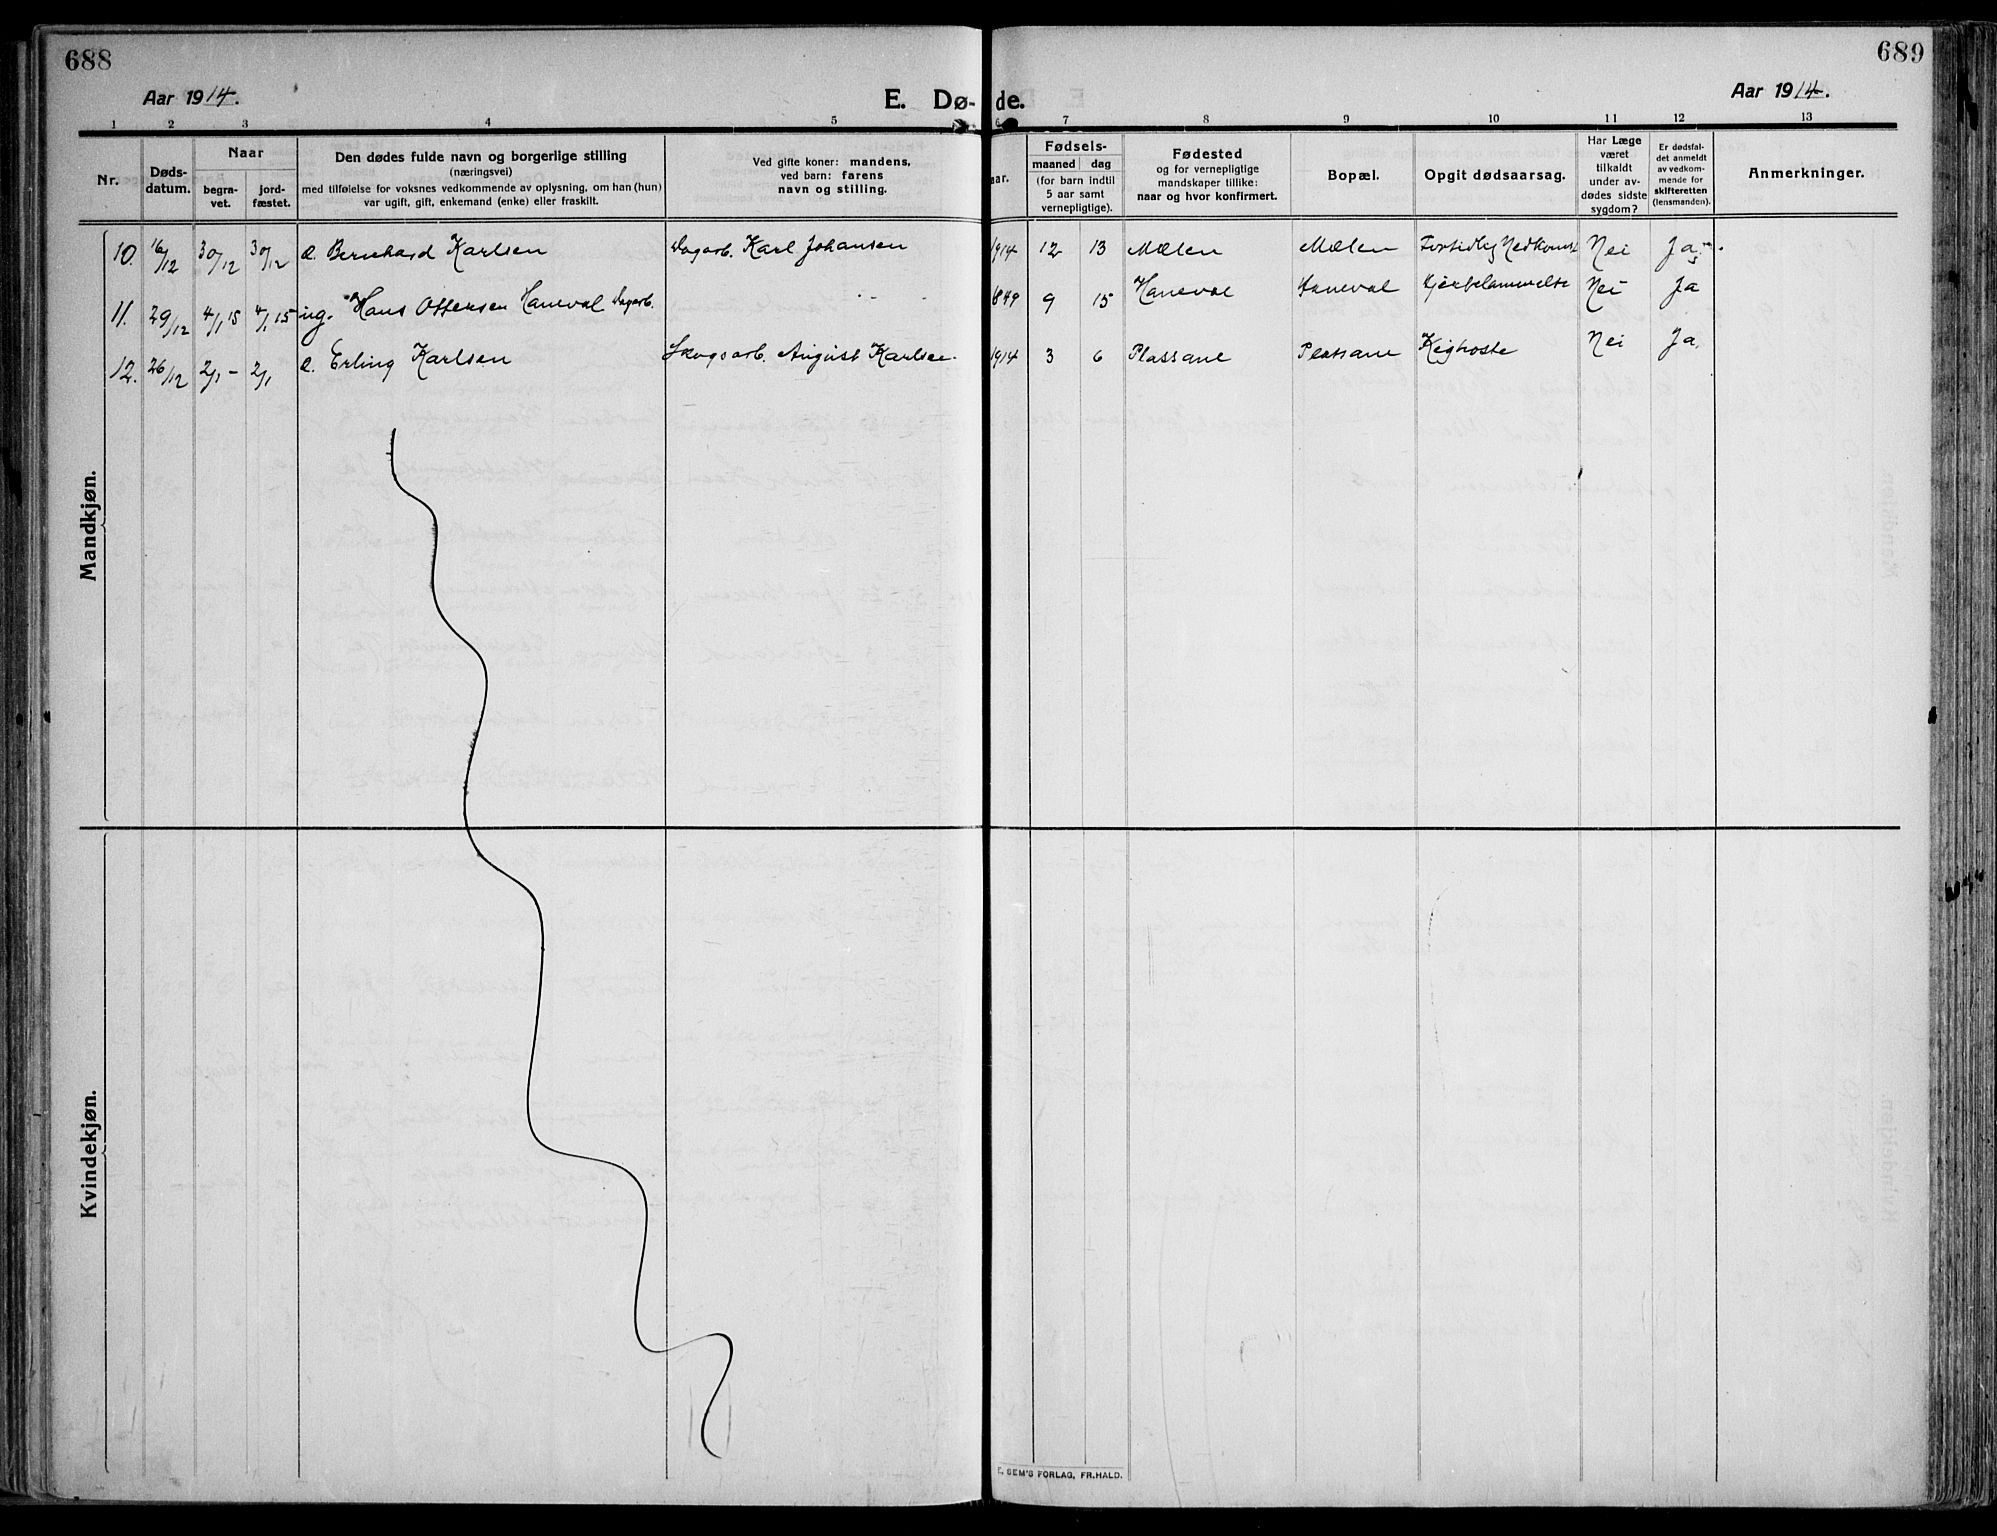 688
689
Aar 1914.
E. Dø-
de.
Aar 1914.
1 2 3 4 5 6 7 8 9 10 11 12 13
Nr.
Døds-
datum.
Naar
begra-
vet.
jord-
fæstet.
Den dødes fulde navn og borgerlige stilling
(næringsvei)
med tilføielse for voksnes vedkommende av oplysning, om han (hun)
var ugift, gift, enkemand (enke) eller fraskilt.
Ved gifte koner: mandens,
ved barn: farens
navn og stilling.
ar.
Fødsels-
maaned dag
(for barn indtil
5 aar samt
vernepligtige).
Fødested
og for vernepligtige
mandskaper tillike:
naar og hvor konfirmert.
Bopæl.
Opgit dødsaarsag.
Har Læge
været
tilkaldt
under av-
dødes sidste
sygdom?
Er dødsfal-
det anmeldt
av vedkom-
mende for
skifteretten
(lensmanden).
Anmerkninger.
Mandkjøn.
10. 16/12 30/12 30/12 Bernhard Karlsen Dagarb. Karl Johansen 1914 12 13 Mælen Mælen Fortidlig Nedkomst Nei Ja
11. 29/12 4/1 15 4/1 15 ug. Hans Ottersen Haneval Dagarb. 1849 9 15 Haneval Haneval Hjertelammelse Nei Ja
12. 26/12 2/1 - 2/1 Erling Karlsen Skogsarb. August Karlsen 1914 3 6 Plassane Plassane Kighoste Nei Ja.
Kvindekjøn.
E. SEM'S FORLAG, FR.HALD.